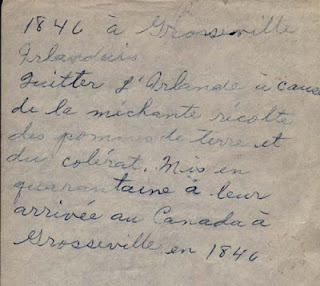 1846 à Grosseville
Irlanduis
Quitter l'Irlande à cause
de la méchante récolte
des pommes de terre et
du colérat. Mis en
quarantaine à leur
arrivée au Canada à
Grosseville en 1846